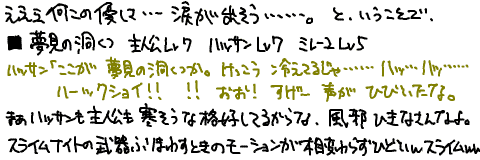 えええ何この優しさ… 涙が出そう……。 と、いうことで、
■ 夢見の洞くつ 主人公Lv7 ハッサンLv7 ミレーユLv5
ハッサン「ここが 夢見の洞くつか。けっこう 冷えてるじゃ…… ハッ…ハッ……
ハーックショイ!! !! おお! すげー 声が ひびいたなな。
まぁハッサンも主人公も寒そうな格好してるからな、風邪ひきなさんなよ。
スライムナイトの武器ふりまわすときのモーションが相変わらずひどいwスライムww